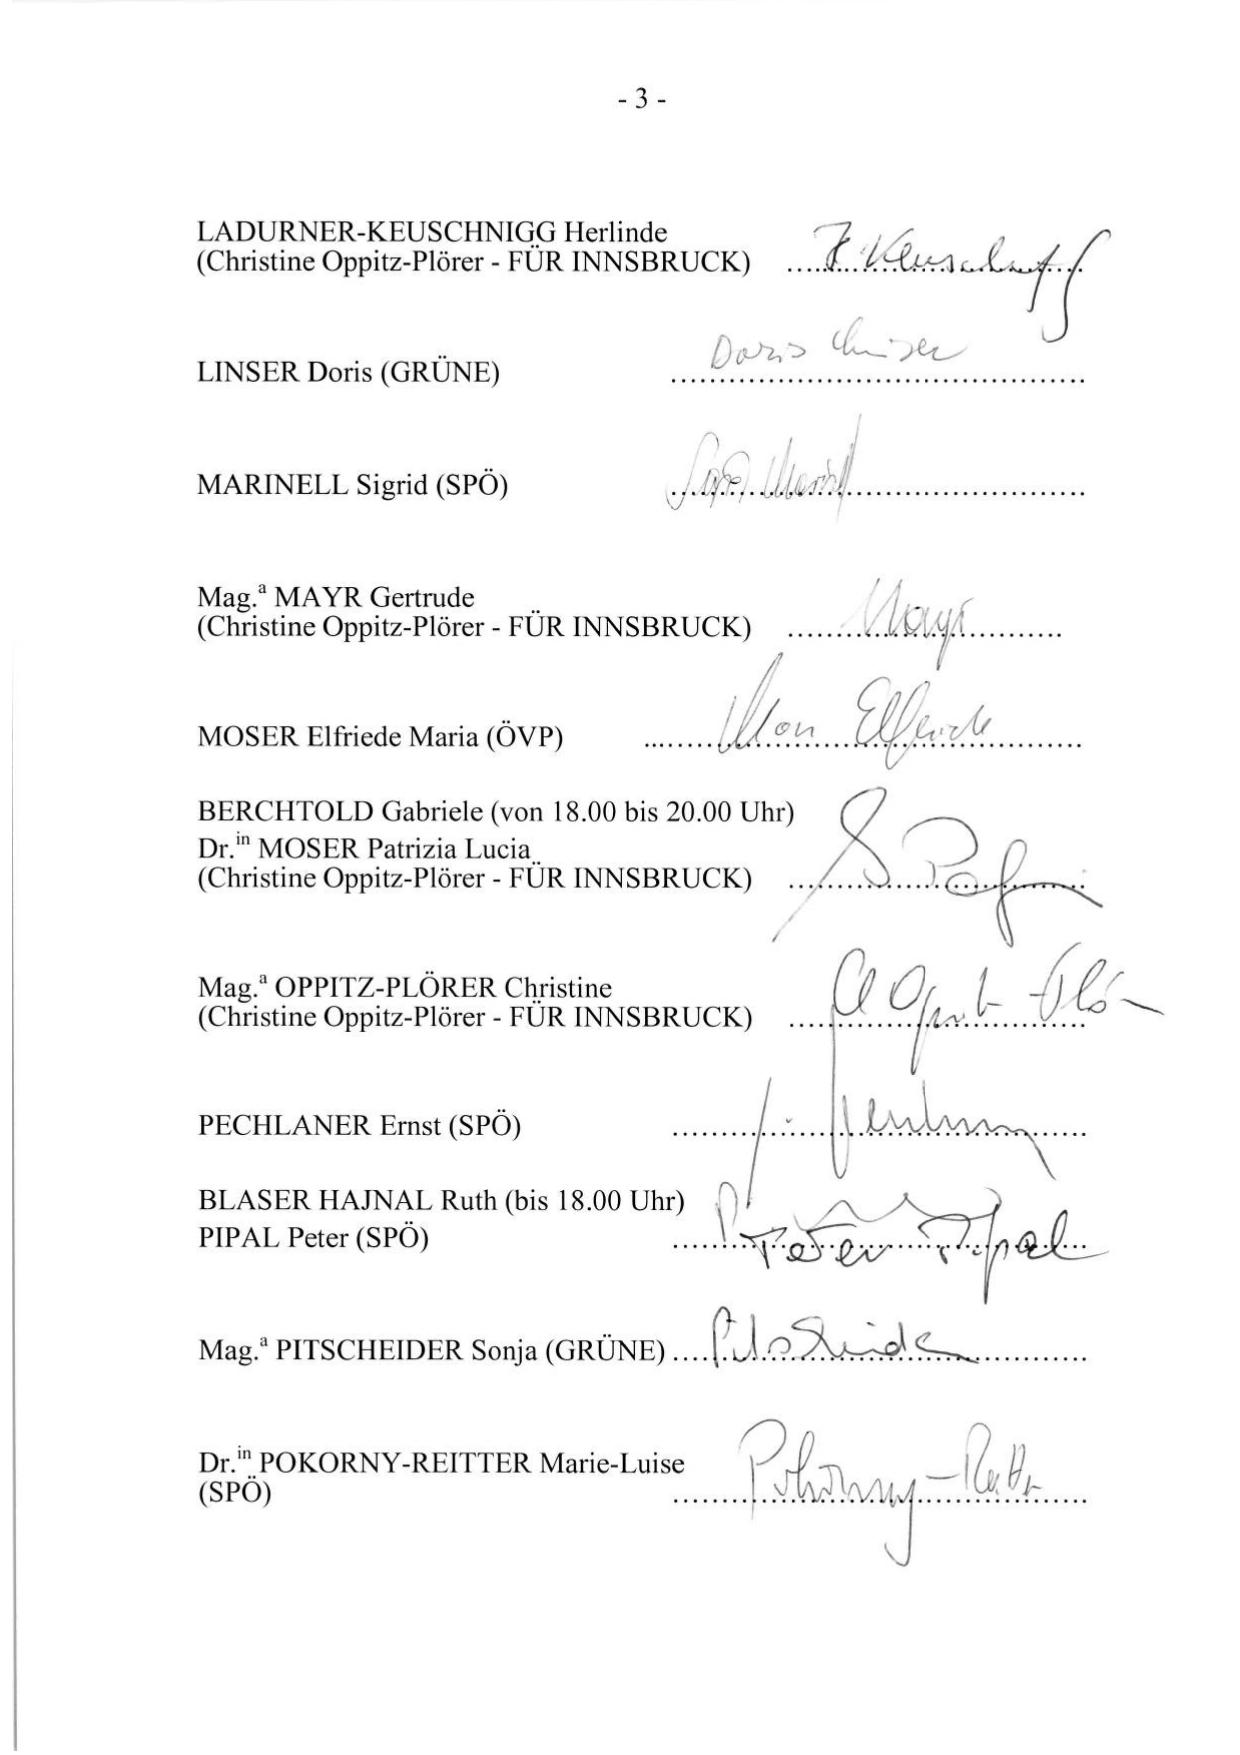 - 3 -
LADURNER-KEUSCHNIGG Herlinde
(Christine Oppitz-Plörer - FÜR INNSBRUCK) ........................................
LINSER Doris (GRÜNE) ........................................................
Doris Linser
MARINELL Sigrid (SPÖ) ........................................................
Mag.ª MAYR Gertrude
(Christine Oppitz-Plörer - FÜR INNSBRUCK) ........................................
Mayr
MOSER Elfriede Maria (ÖVP) ........................................................
Elfriede
BERCHTOLD Gabriele (von 18.00 bis 20.00 Uhr)
Dr.in MOSER Patrizia Lucia
(Christine Oppitz-Plörer - FÜR INNSBRUCK) ........................................
Mag.ª OPPITZ-PLÖRER Christine
(Christine Oppitz-Plörer - FÜR INNSBRUCK) ........................................
PECHLANER Ernst (SPÖ) ........................................................
BLASER HAJNAL Ruth (bis 18.00 Uhr)
PIPAL Peter (SPÖ) ........................................................
Peter Pipal
Mag.ª PITSCHEIDER Sonja (GRÜNE) ........................................................
Dr.in POKORNY-REITTER Marie-Luise
(SPÖ) ........................................................
Pokorny-Reitter